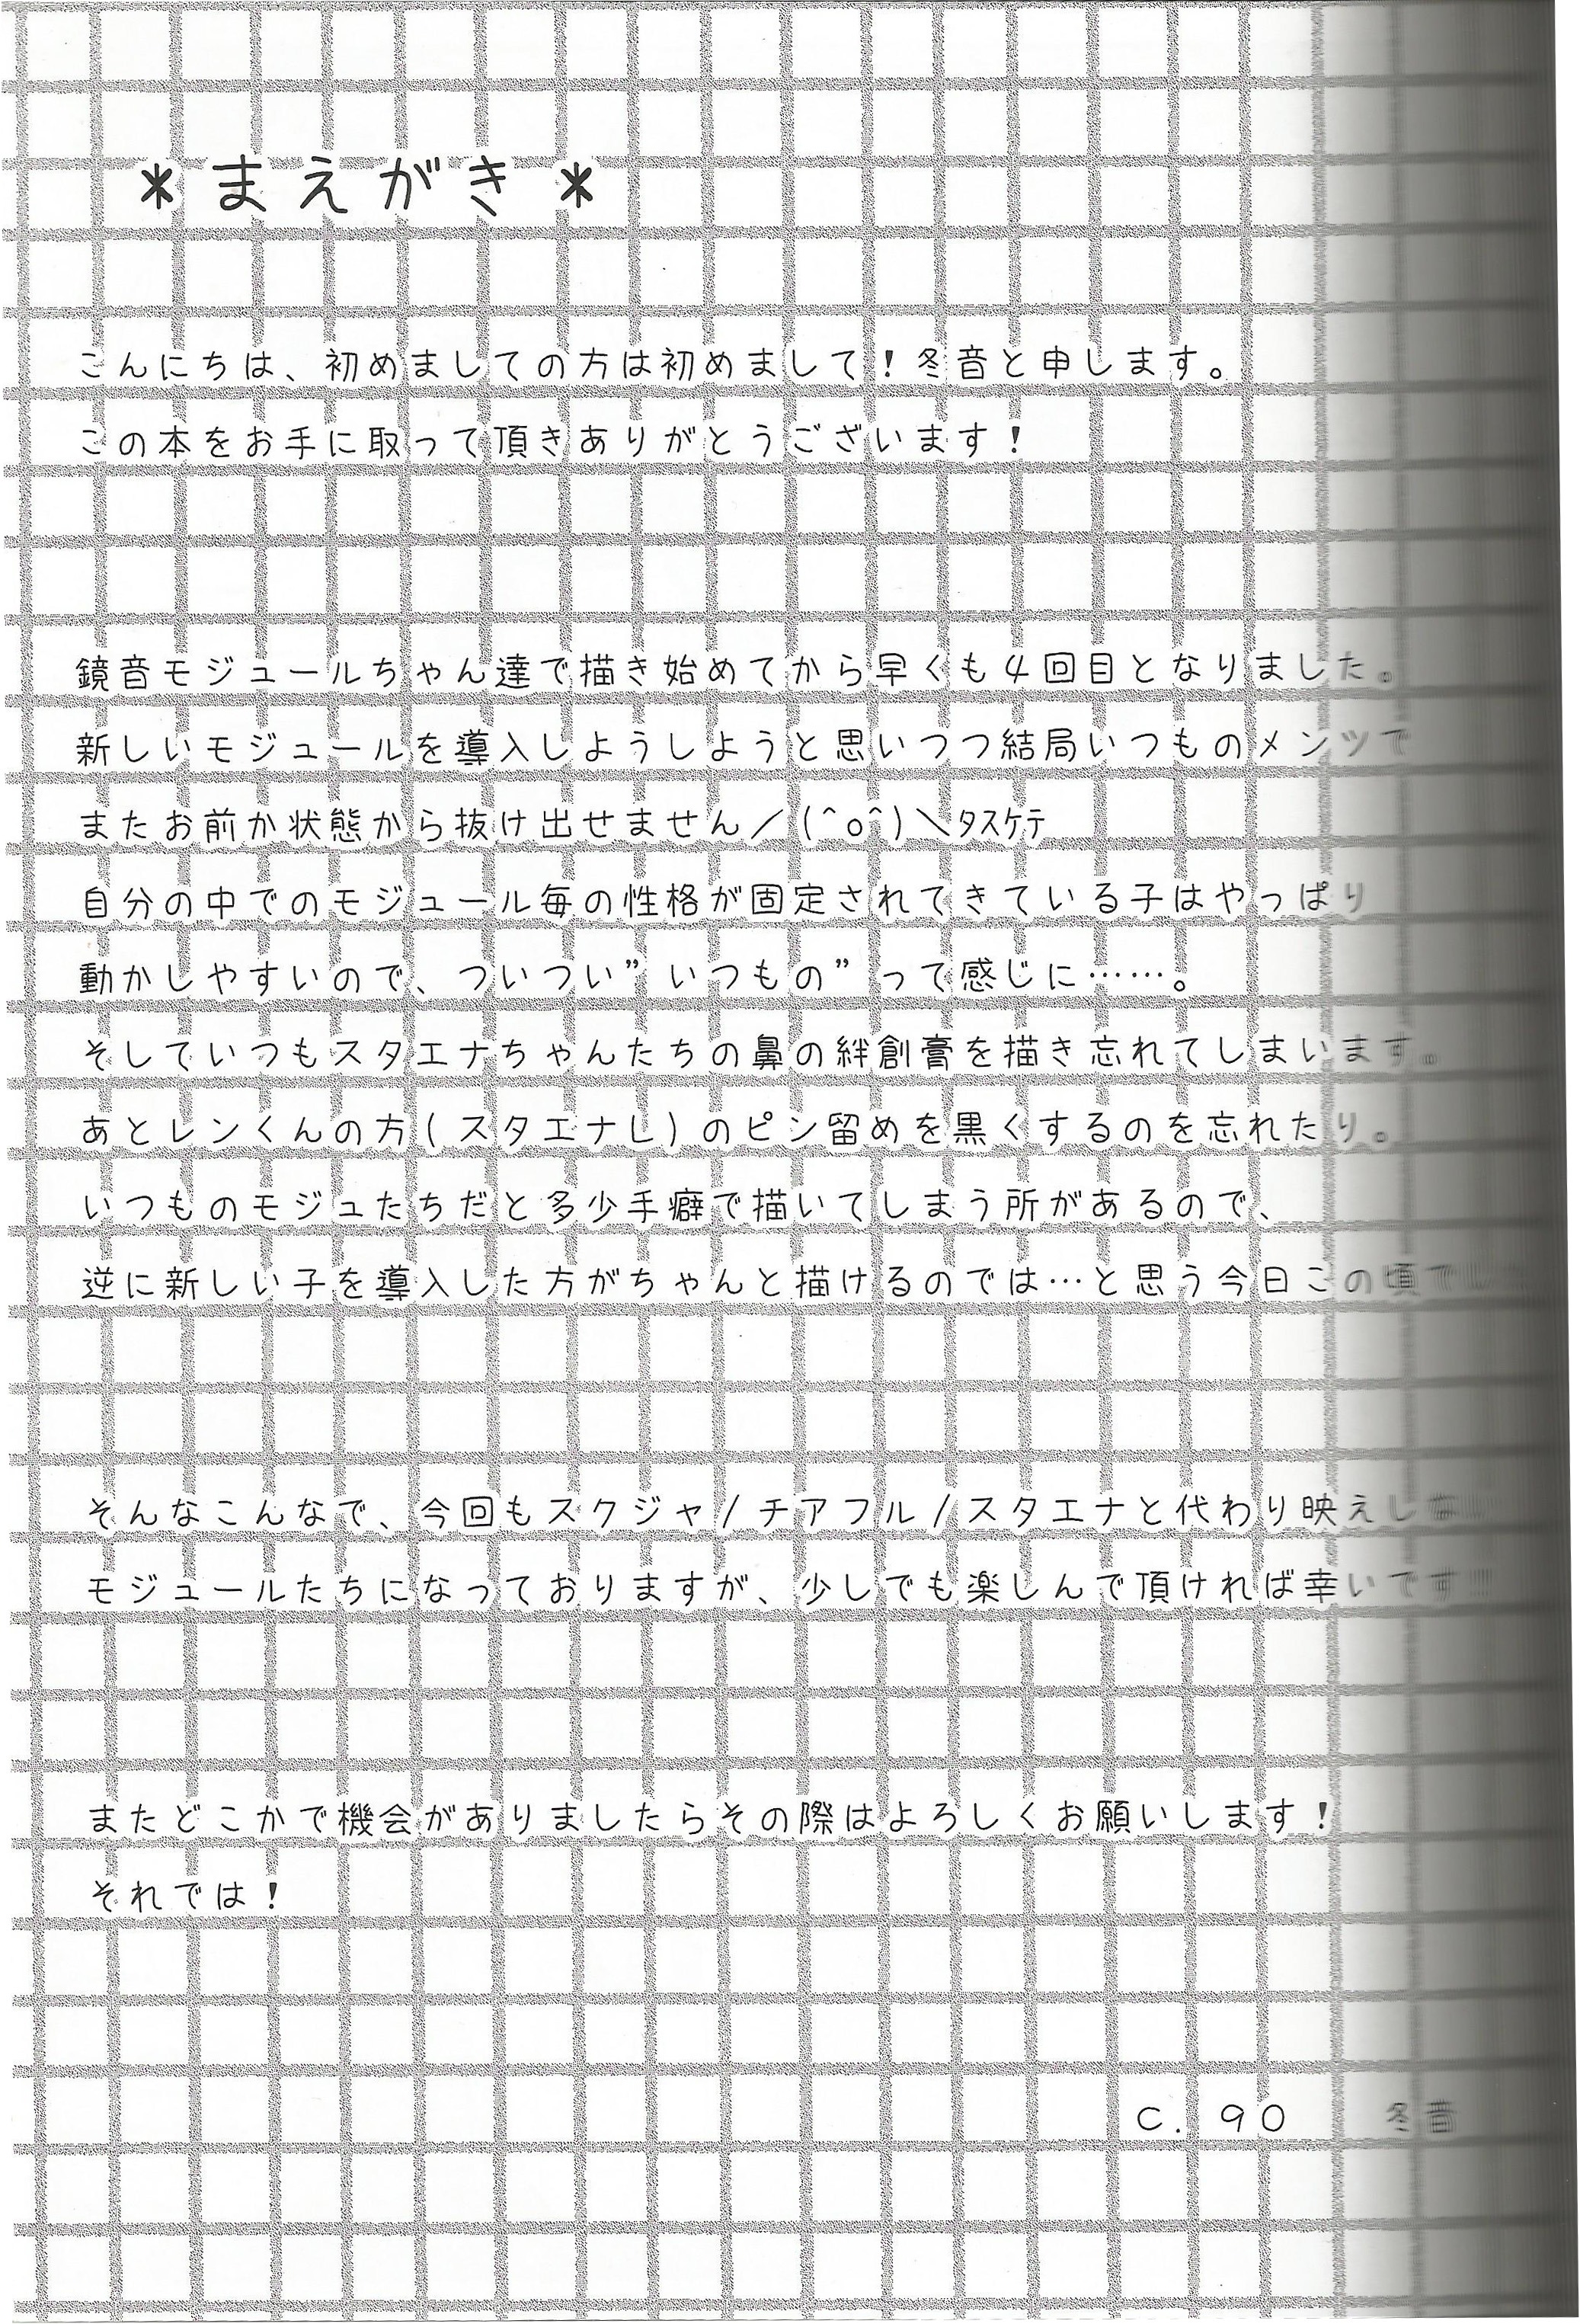 ＊まえがき＊
こんにちは、初めましての方は初めまして！冬音と申します。
この本をお手に取って頂きありがとうございます！
鏡音モジュールちゃん達で描き始めてから早くも４回目となりました。
新しいモジュールを導入しようしようと思いつつ結局いつものメンツで
またお前か状態から抜け出せません／(^o^)＼ﾀｽｹﾃ
自分の中でのモジュール毎の性格が固定されてきている子はやっぱり
動かしやすいので、ついつい”いつもの”って感じに……。
そしていつもスタエナちゃんたちの鼻の絆創膏を描き忘れてしまいます。
あとレンくんの方(スタエナL)のピン留めを黒くするのを忘れたり。
いつものモジュたちだと多少手癖で描いてしまう所があるので、
逆に新しい子を導入した方がちゃんと描けるのでは…と思う今日この頃で
そんなこんなで、今回もスクジャ/チアフル/スタエナと代わり映えしな
モジュールたちになっておりますが、少しでも楽しんで頂ければ幸いです
またどこかで機会がありましたらその際はよろしくお願いします！
それでは！
C. 90　冬音